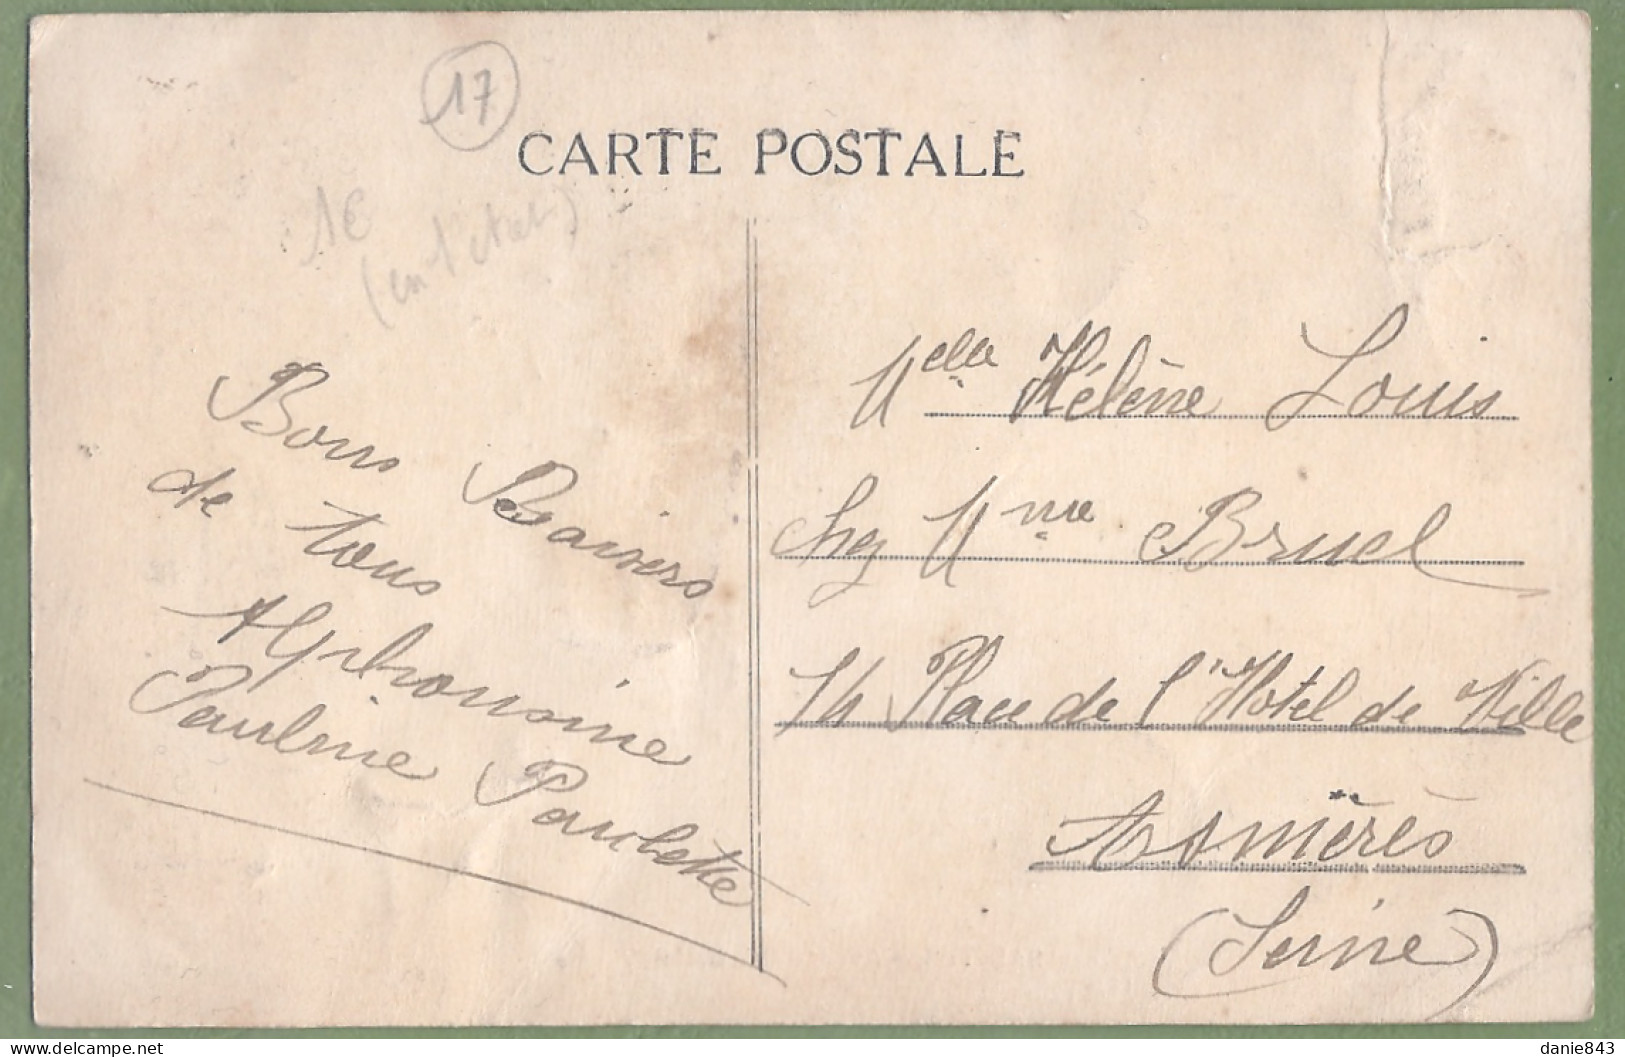 17
CARTE POSTALE
1€
(en l'état)
Bons Baisers
de tous
Alphonsine
Pauline Paulette
Melle Hélène Louis
chez Mme Bruel
14 Place de l'Hotel de Ville
Asnières
(Seine)
delcampe.net
danie843